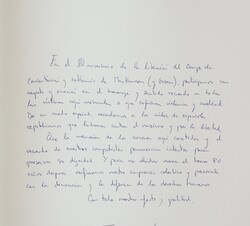 En el 80 aniversario de la liberación del Campo de
Concentración y exterminio de Mauthausen (y Gusen), participamos con
respeto y emoción en el homenaje y sentido recuerdo a todas
las víctimas aquí asesinadas o que sufrieron violencia y crueldad.
De un modo especial recordamos a los miles de españoles
republicanos que lucharon contra el nazismo y por la libertad.
Que la memoria de lo aquí y el
recuerdo de nuestros compatriotas permanezca intacta para
preservar su dignidad. Y para no olvidar nunca el horror 80
años después reafirmamos nuestro compromiso colectivo y permanente
con la democracia y la defensa de los derechos humanos
Con todo nuestro afecto y gratitud,